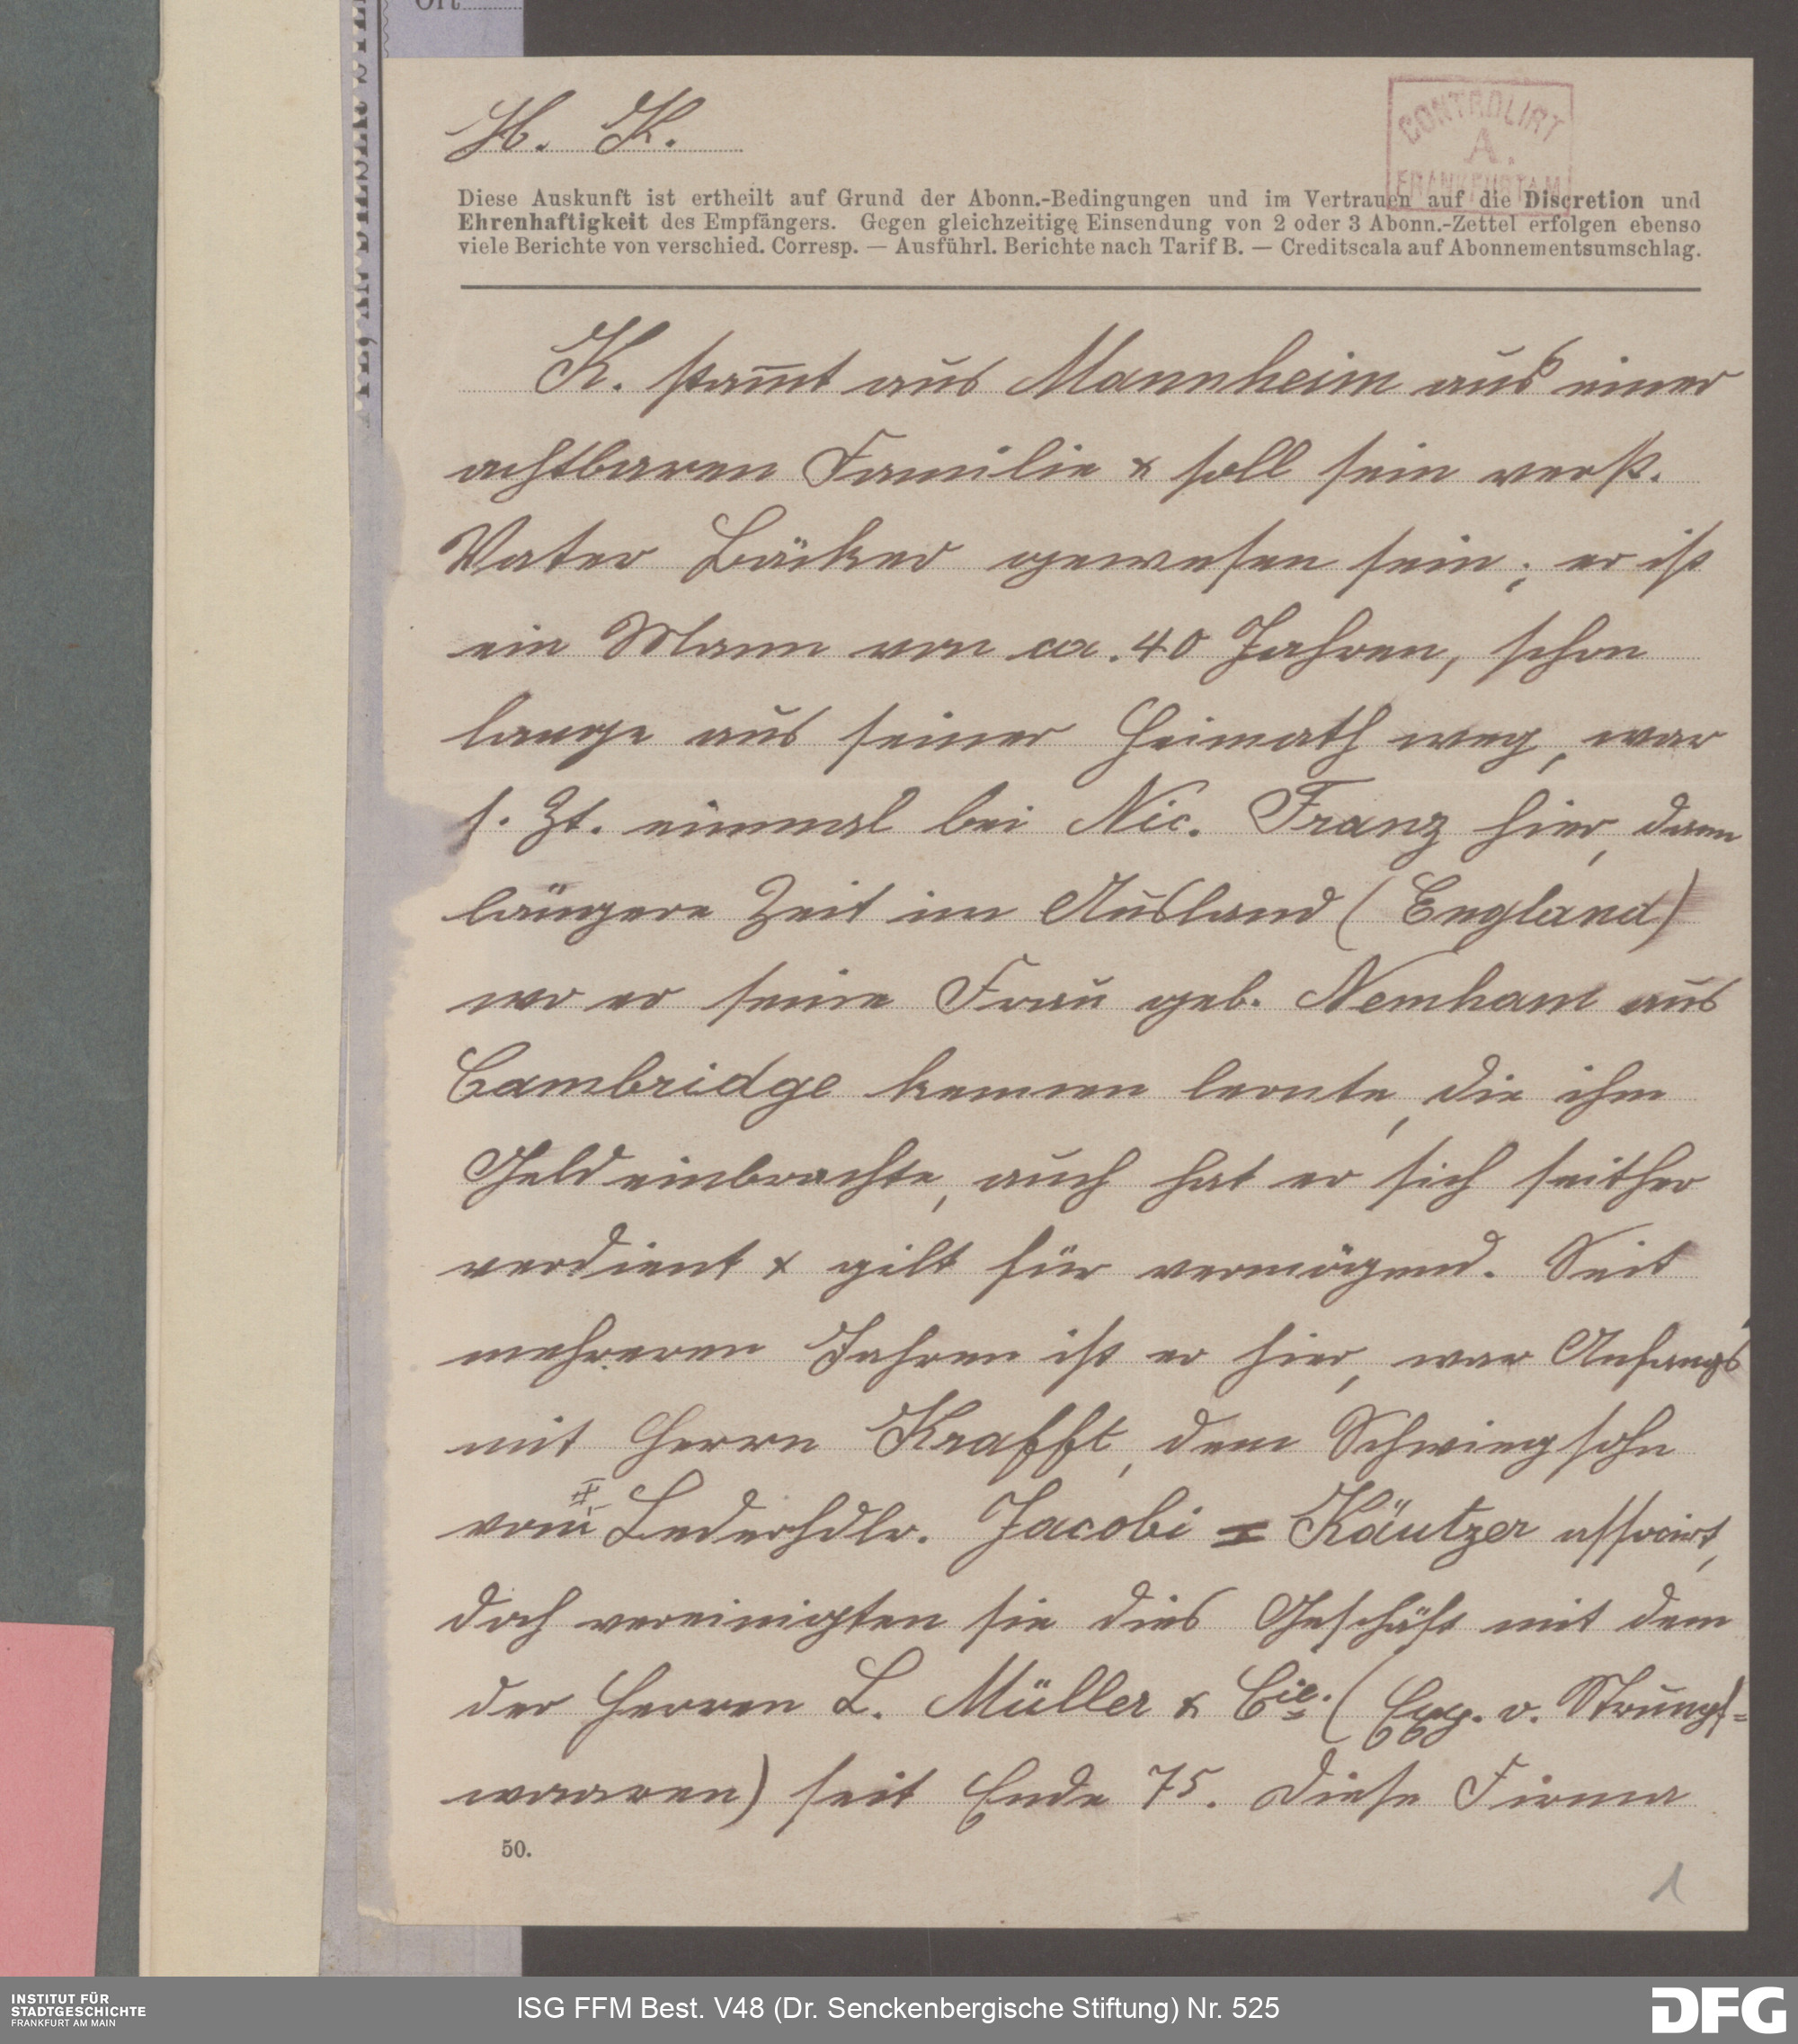 Ort
H. K.
CONTROLIRT
A.
FRANKFURT A.M.
Diese Auskunft ist ertheilt auf Grund der Abonn.-Bedingungen und im Vertrauen auf die Discretion und
Ehrenhaftigkeit des Empfängers. Gegen gleichzeitige Einsendung von 2 oder 3 Abonn.-Zettel erfolgen ebenso
viele Berichte von verschied. Corresp. — Ausführl. Berichte nach Tarif B. — Creditscala auf Abonnementsumschlag.
K. stam̅t aus Mannheim aus einer
achtbaren Familie & soll sein verst.
Vater Bäcker gewesen sein; er ist
ein Mann von ca. 40 Jahren, schon
lange aus seiner Heimath weg, war
s. Zt. einmal bei Nic. Franz hier, dann
längere Zeit im Ausland (England)
wo er seine Frau geb. Nemham aus
Cambridge kennen lernte, die ihm
Geld einbrachte, auch hat er sich seither
verdient & gilt für vermögend. Seit
mehreren Jahren ist er hier, war Anfangs
mit Herrn Krafft, dem Schwiegsohn
vom Lederhdlr. Jacobi = Käutzer associrt,
doch vereinigten sie dies Geschäft mit dem
der Herren L. Müller & Cie. (Eng. v. Strumpf=
waaren) seit Ende 75. Diese Firma
50.
1
INSTITUT FÜR
STADTGESCHICHTE
FRANKFURT AM MAIN
ISG FFM Best. V48 (Dr. Senckenbergische Stiftung) Nr. 525
DFG